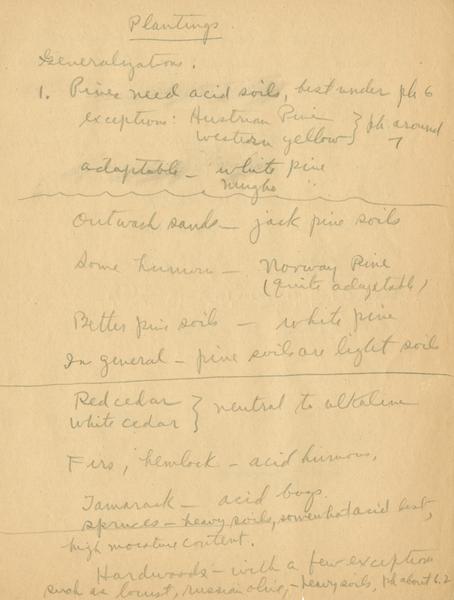 Plantings.
Generalizations.
1. Pines need acid soils, best under ph 6
exceptions: Austrian Pine } ph around
western yellow 7
adaptable - white pine
Mugho
Outwash sands - jack pine soils
Some humus - Norway Pine
(quite adaptable)
Better pine soils - white pine
In general - pine soils are light soils
Red cedar } neutral to alkaline
White cedar
Firs, hemlock - acid humous,
Tamarack - acid bogs.
spruces - heavy soils, somewhat acid best,
high moisture content.
Hardwoods - with a few exception
such as locust, russian olive, - heavy soils, ph about 6.2